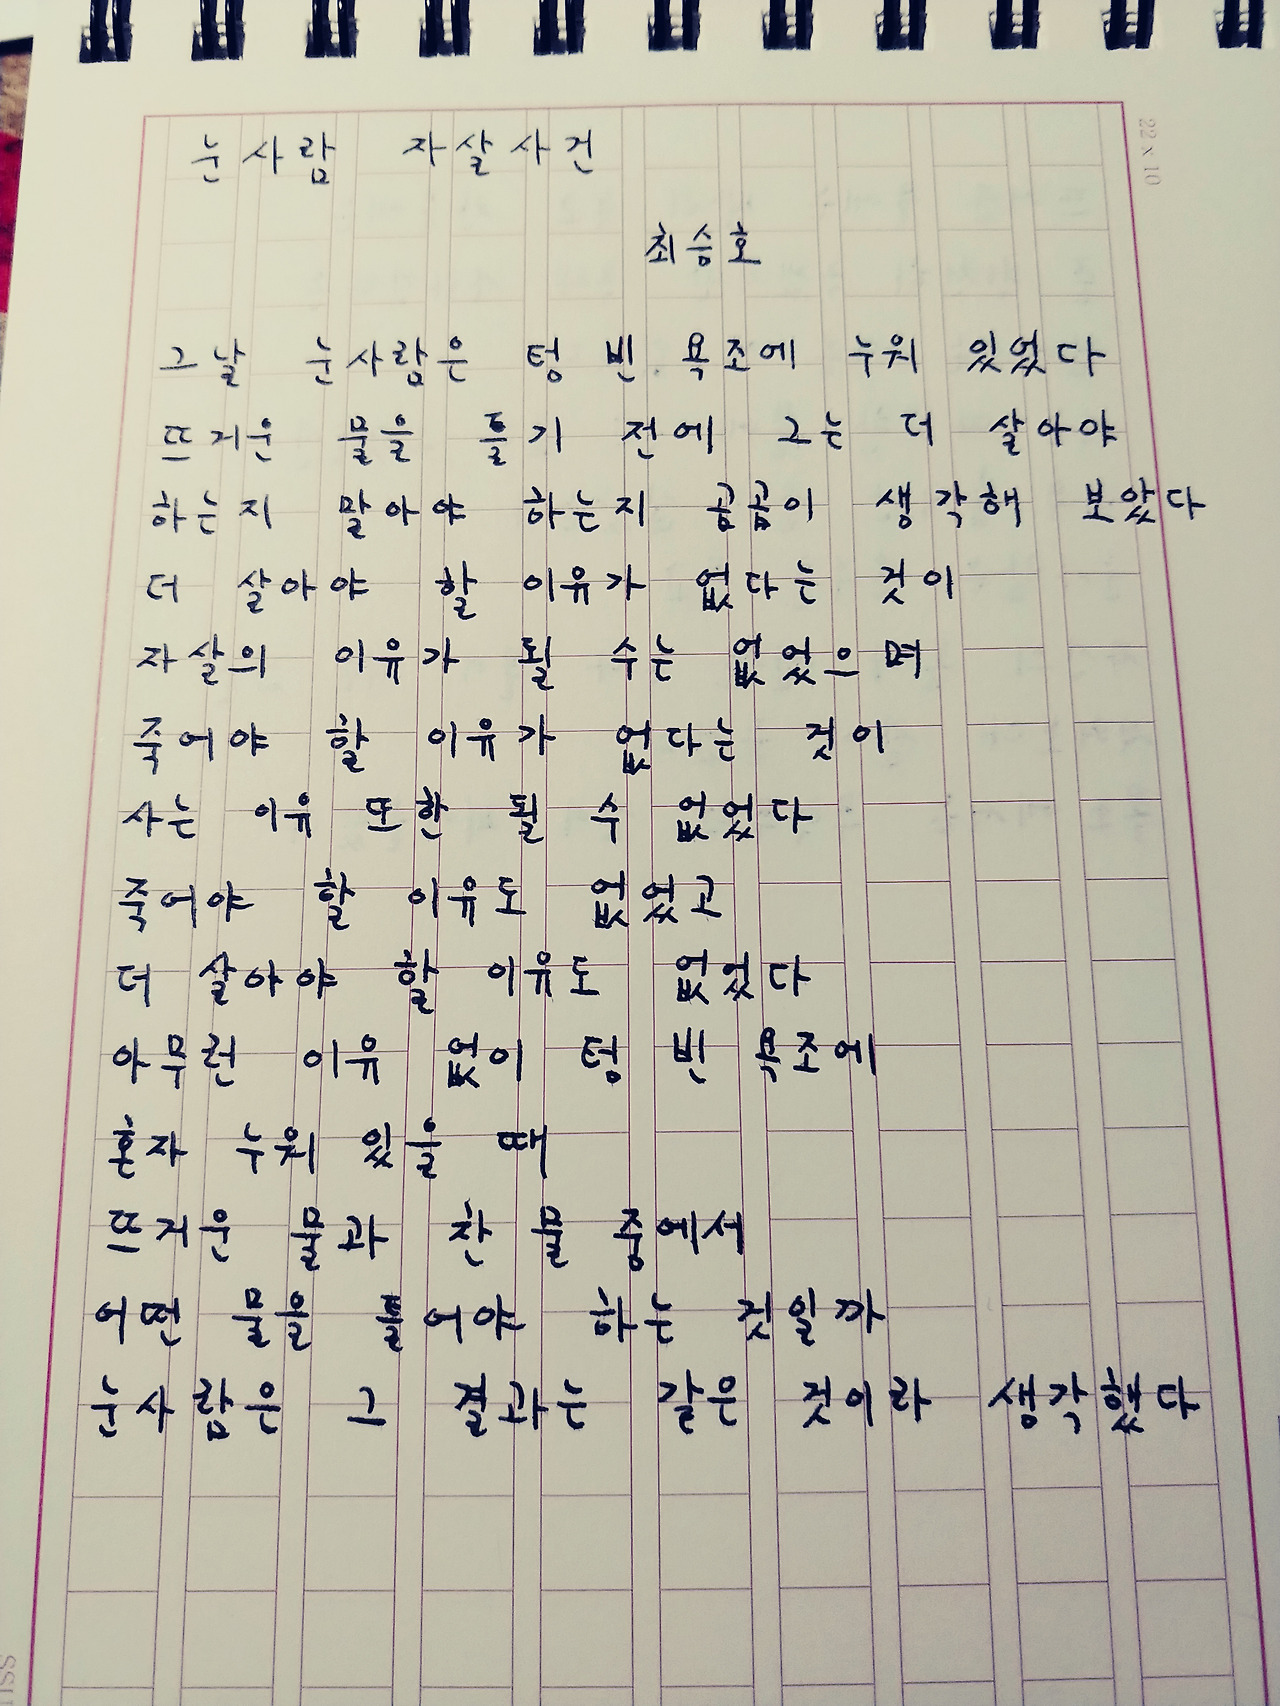 22 x 10
눈사람 자살사건
최승호
그날 눈사람은 텅 빈 욕조에 누워 있었다
뜨거운 물을 틀기 전에 그는 더 살아야
하는지 말아야 하는지 곰곰이 생각해 보았다
더 살아야 할 이유가 없다는 것이
자살의 이유가 될 수는 없었으며
죽어야 할 이유가 없다는 것이
사는 이유 또한 될 수 없었다
죽어야 할 이유도 없었고
더 살아야 할 이유도 없었다
아무런 이유 없이 텅 빈 욕조에
혼자 누워 있을 때
뜨거운 물과 찬 물 중에서
어떤 물을 틀어야 하는 것일까
눈사람은 그 결과는 같은 것이라 생각했다